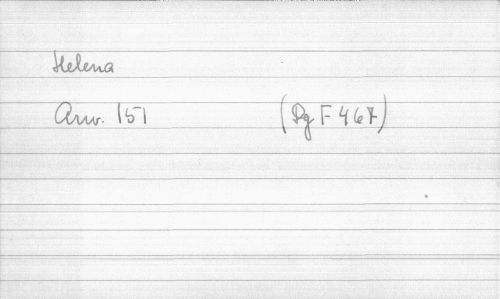 Helena
Arw. 151 (Dg F 467)